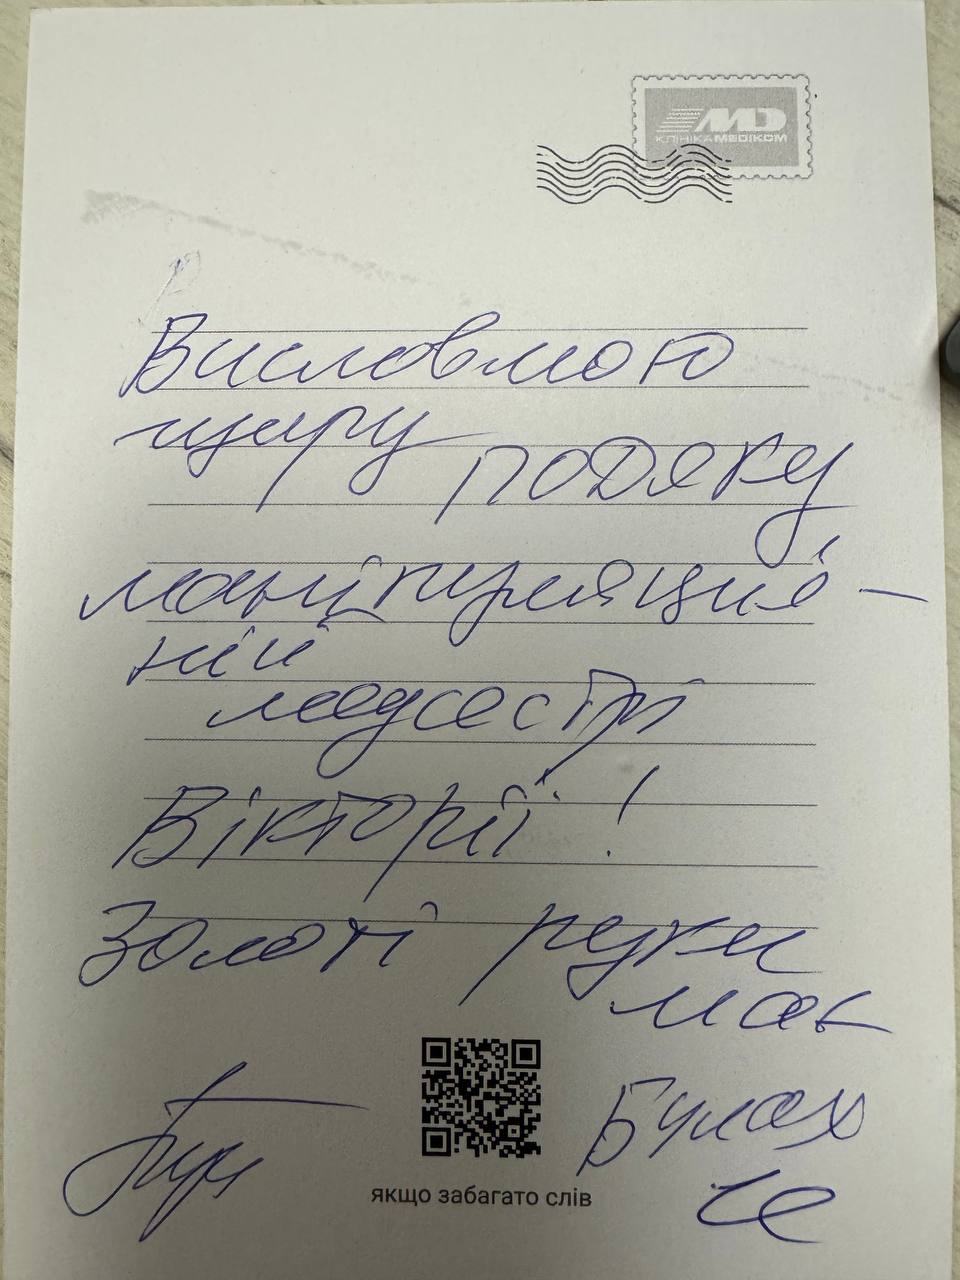 MD
КЛІНІКА МЕДІКОМ
Висловлюю
щиру подяку
маніпуляцій-
ній
медсестрі
Вікторії!
Золоті руки
має
Булах
якщо забагато слів